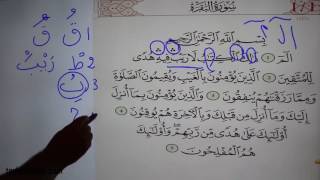 سُورَةُ الْبَقَرَةِ
بِسْمِ اللَّهِ الرَّحْمَٰنِ الرَّحِيمِ
الم ذَٰلِكَ الْكِتَابُ لَا رَيْبَ فِيهِ هُدًى
لِّلْمُتَّقِينَ الَّذِينَ يُؤْمِنُونَ بِالْغَيْبِ وَيُقِيمُونَ الصَّلَاةَ
وَمِمَّا رَزَقْنَاهُمْ يُنفِقُونَ وَالَّذِينَ يُؤْمِنُونَ بِمَا أُنزِلَ
إِلَيْكَ وَمَا أُنزِلَ مِن قَبْلِكَ وَبِالْآخِرَةِ هُمْ يُوقِنُونَ
أُولَٰئِكَ عَلَىٰ هُدًى مِّن رَّبِّهِمْ وَأُولَٰئِكَ
هُمُ الْمُفْلِحُونَ
2
3